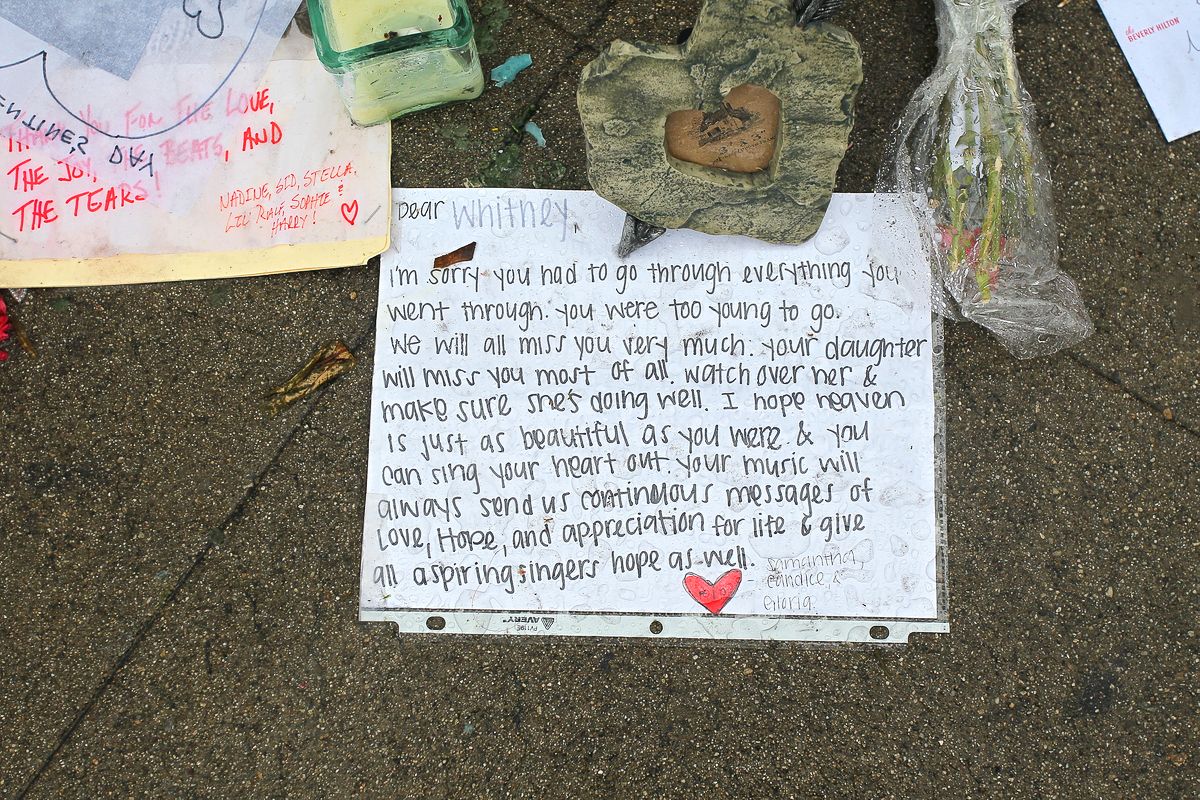 ENTINE'S DAY
THANK YOU FOR THE LOVE,
THE JOY, THE BEATS, AND
THE TEARS!
NADINE, SID, STELLA,
LIL' RALÉ, SOPHIE &
HARRY!
the
BEVERLY HILTON
Dear Whitney
I'm sorry you had to go through everything you
went through. you were too young to go.
we will all miss you very much. your daughter
will miss you most of all. watch over her &
make sure she's doing well. I hope heaven
is just as beautiful as you were & you
can sing your heart out. your music will
always send us continuous messages of
Love, Hope, and appreciation for life & give
all aspiring singers hope as well.
- samantha,
candice, &
Gloria.
AVERY®
PV119E